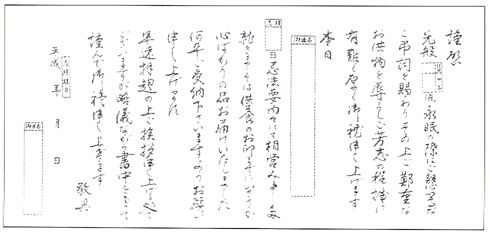 謹啓
先般 儀永眠の際はご懇篤な
ご弔詞を賜わりその上ご鄭重な
お供物を辱うしご芳志の程誠に
有難く厚く御礼申し上げます
本日
忌法要内々にて相営みました
就きましては供養のおしるしまでにいささか
心ばかりの品お届けいたしました
何卒ご受納下さいますようお願い
申し上げます
早速拝趨の上ご挨拶申し上げるべきで
ございますが略儀ながら書中をもって
謹んで御礼申し上げます
敬具
平成 年 月 日